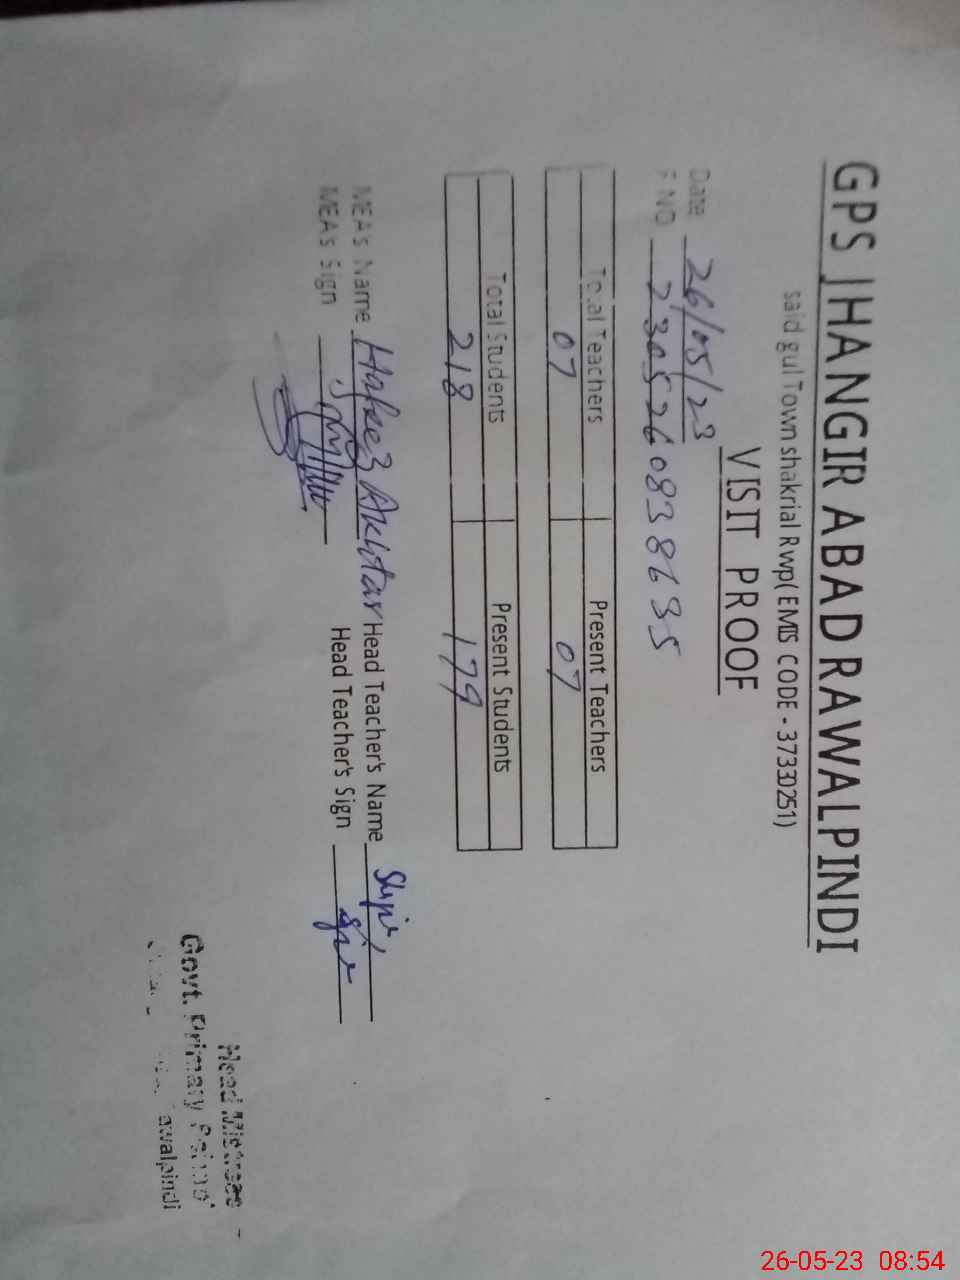 GPS JHANGIR ABAD RAWALPINDI
said gul Town shakrial Rwp( EMIS CODE - 37330251)
VISIT PROOF
Date 26/05/23
F NO 2305260838635
Total Teachers Present Teachers
07 07
Total Students Present Students
218 179
MEA's Name Hafeez Akhtar Head Teacher's Name
MEA's Sign Head Teacher's Sign
Head Mistress
Govt. Primary School
awalpindi
26-05-23 08:54